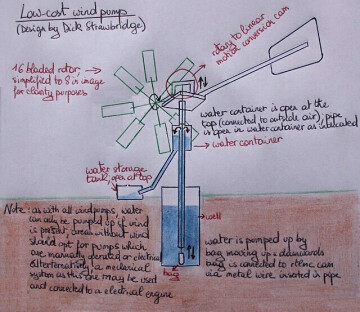 Low-cost windpumps
(Design by Dick Strawbridge)
rotary to linear
motion conversion cam
16 bladed rotor,
simplified to 8 in
image for clarity purposes
water container is open at the
top (connected to outside air), pipe
is open in water container as indicated
water container
water storage
tank, open at top
well
bag
Note: as with all windpumps, water
can only be pumped up if wind
is present, areas without wind
should opt for pumps which
are manually operated or electrical
alternatively, a mechanical
system as this one may be used
and connected to a electrical engine
water is pumped up by
bag moving up & downwards
bag is connected to cam
via metal wire inserted in pipe